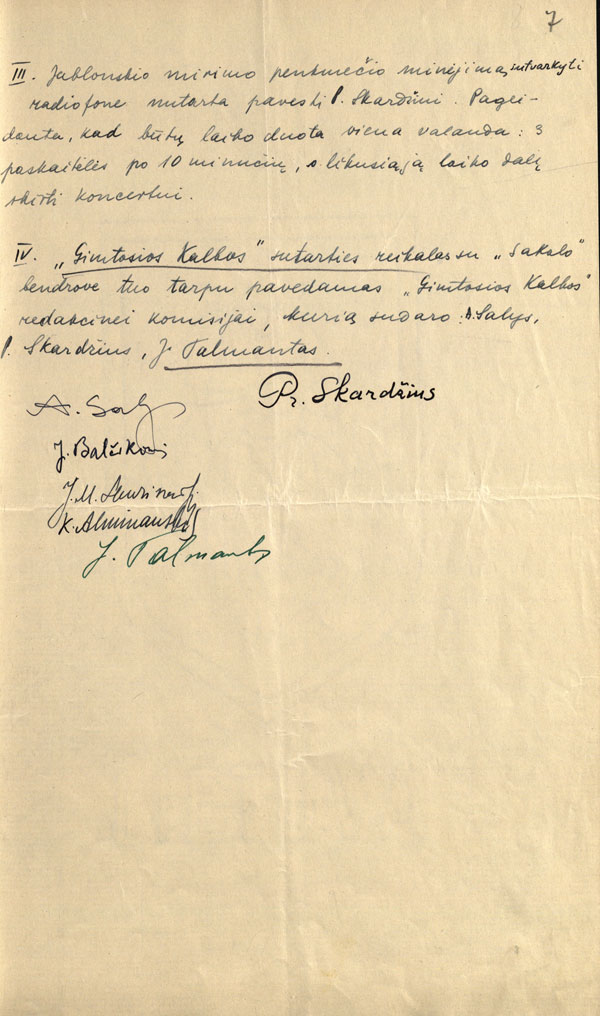 7
III. Jablonskio mirimo penkmečio minėjimą sutvarkyti
radiofone nutarta pavesti P. Skardžiui. Pagei-
dauta, kad būtų laiko duota viena valanda: 3
paskaitėlės po 10 minučių, o likusiąją laiko dalį
skirti koncertui.
IV. „Gimtosios Kalbos" sutarties reikalas su „Sakalo"
bendrove tuo tarpu pavedamas „Gimtosios Kalbos"
redakcinei komisijai, kurią sudaro: A. Salys,
P. Skardžius, J. Talmantas.
Pr. Skardžius
A. Salys
J. Balčikonis
J. M.
K. Alminauskis
J. Talmantas